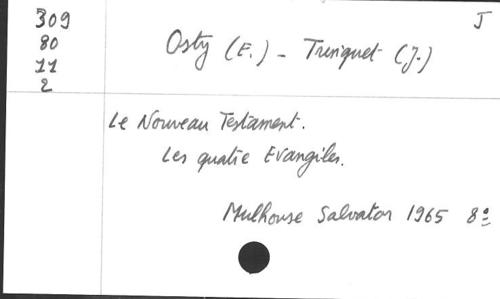 309
80
11
2
J
Osty (E.) - Trinquet (J.)
Le Nouveau Testament.
Les quatre Evangiles.
Mulhouse Salvator 1965 8º